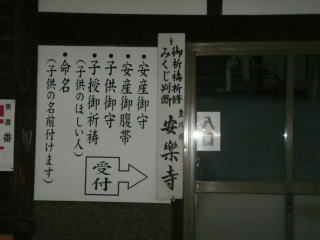 御祈祷祈修
みくじ判断
安樂寺
●安産御守
●安産御腹帯
●子供御守
●子授御祈祷
（子供のほしい人）
●命名
（子供の名前付けます）
受付
番